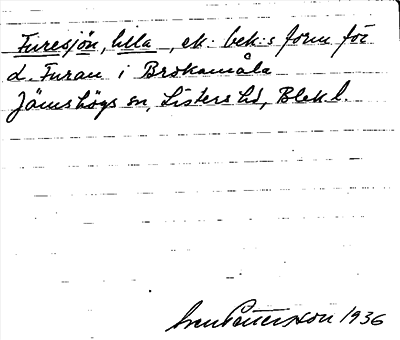 Furesjön, lilla, ek. bek:s form för
d. Furan i Brokamåla
Jämshögs sn, Listers hd, Blek. l.
Sven Pettersson 1936